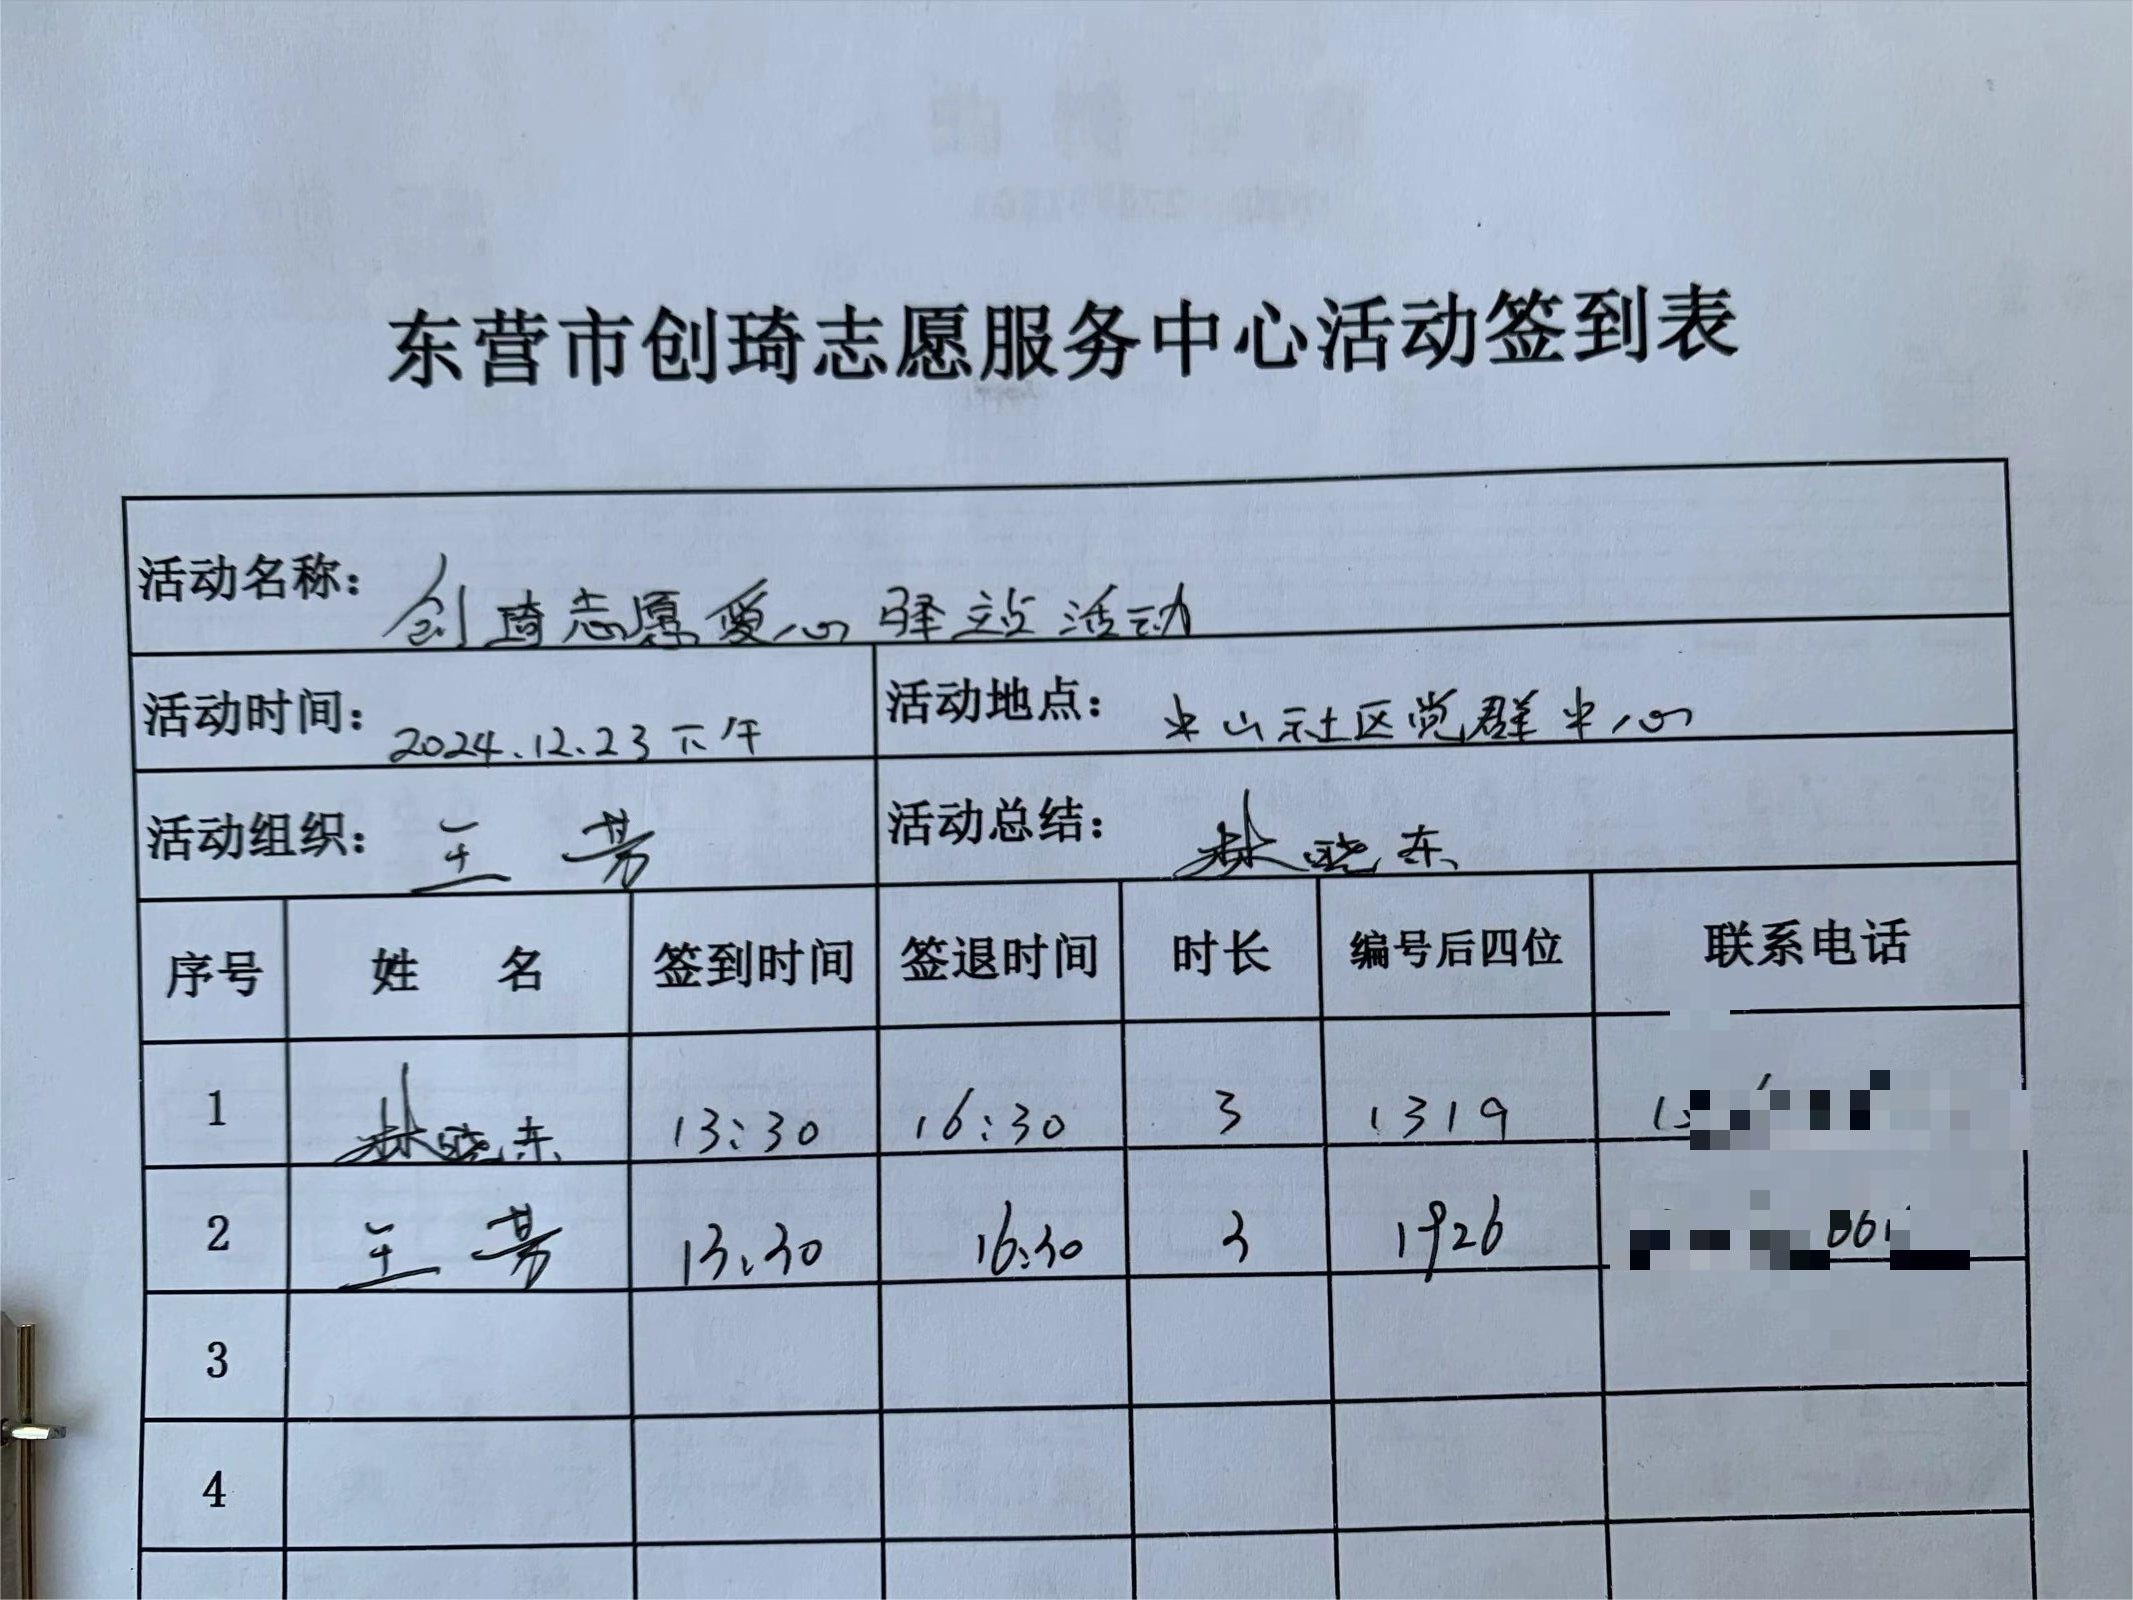 东营市创琦志愿服务中心活动签到表
活动名称: 创琦志愿爱心驿站活动
活动时间: 2024.12.23下午 活动地点: 中山社区党群中心
活动组织: 王芳 活动总结: 林晓东
序号 姓 名 签到时间 签退时间 时长 编号后四位 联系电话
1 林晓东 13:30 16:30 3 1319
2 王芳 13:30 16:30 3 1926
3
4